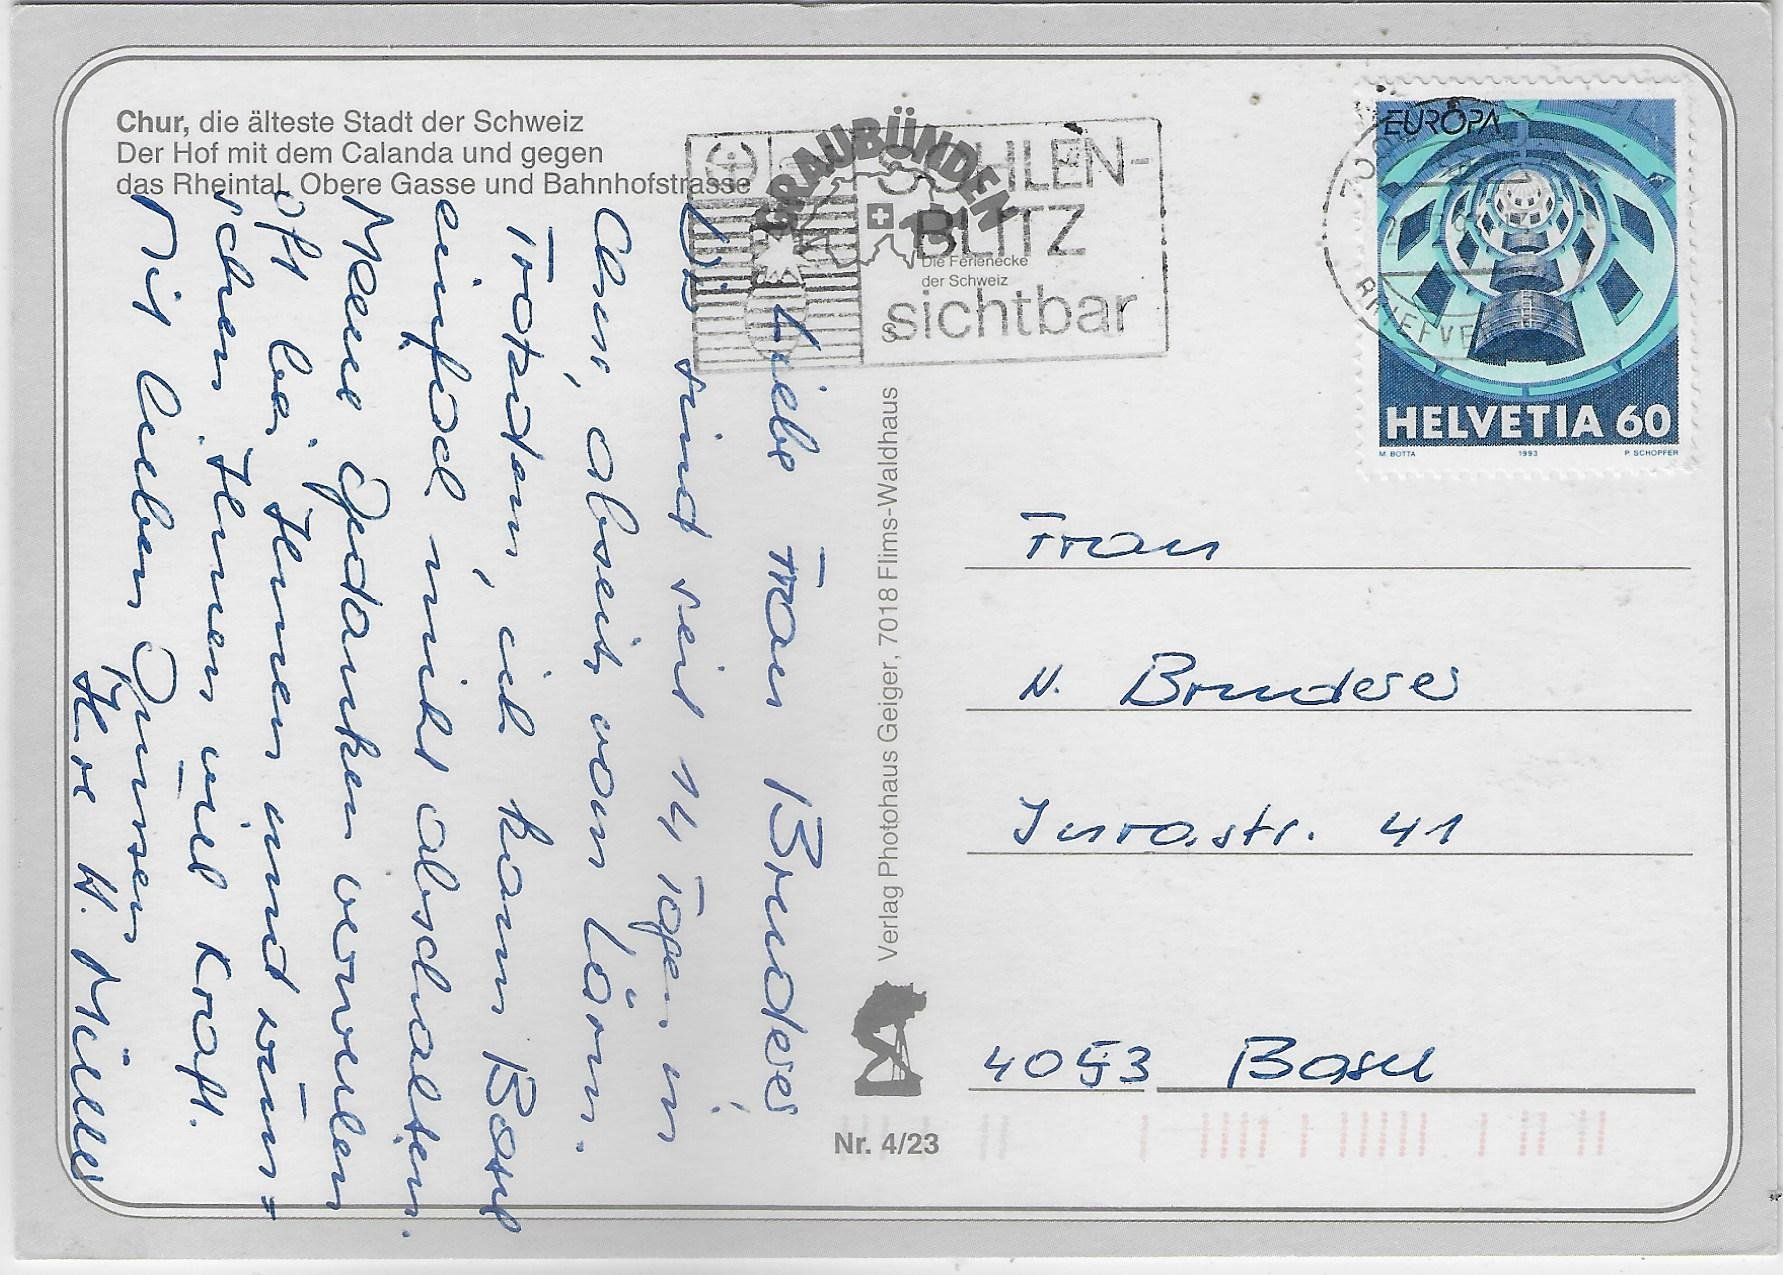 Chur, die älteste Stadt der Schweiz
Der Hof mit dem Calanda und gegen
das Rheintal, Obere Gasse und Bahnhofstrasse
GRAUBÜNDEN
Die Ferienecke
der Schweiz
BLITZ
sichtbar
EUROPA
HELVETIA 60
M. BOTTA 1993 P. SCHOPFER
Liebe Frau Bruderer
Wir sind seit 14 Tagen in
Chur, abseits vom Lärm.
Trotzdem, ich kann Basel
einfach nicht abschalten.
Meine Gedanken verweilen
oft bei Ihnen und wün-
schen Ihnen viel Kraft.
Mit lieben Grüssen
Ihre H. Müller
Verlag Photohaus Geiger, 7018 Flims-Waldhaus
Nr. 4/23
Frau
N. Bruderer
Jurastr. 41
4053 Basel